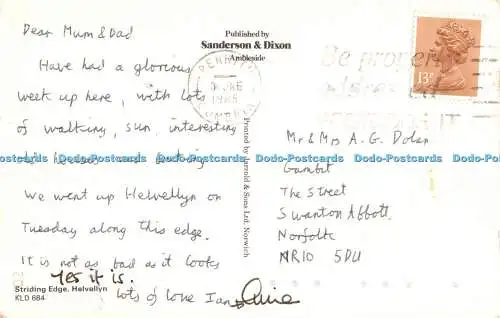 Dear Mum & Dad
Have had a glorious
week up here, with lots
of walking, sun, interesting
We went up Helvellyn on
Tuesday along this edge.
It is not as bad as it looks
Yes it is.
Lots of love Ian & Anne
Striding Edge, Helvellyn
KLD 684
Published by
Sanderson & Dixon
Ambleside
Printed by Jarrold & Sons Ltd. Norwich
PENRITH
1985
CUMBRIA
Be proper
13P
Mr & Mrs A. G. Dolan
Gambit
The Street
Swanton Abbott
Norfolk
NR10 5DU
Dodo-Postcards Dodo-Postcards Dodo-Postcards Dodo-Postcards Dodo-Postcards Dodo-Postcards